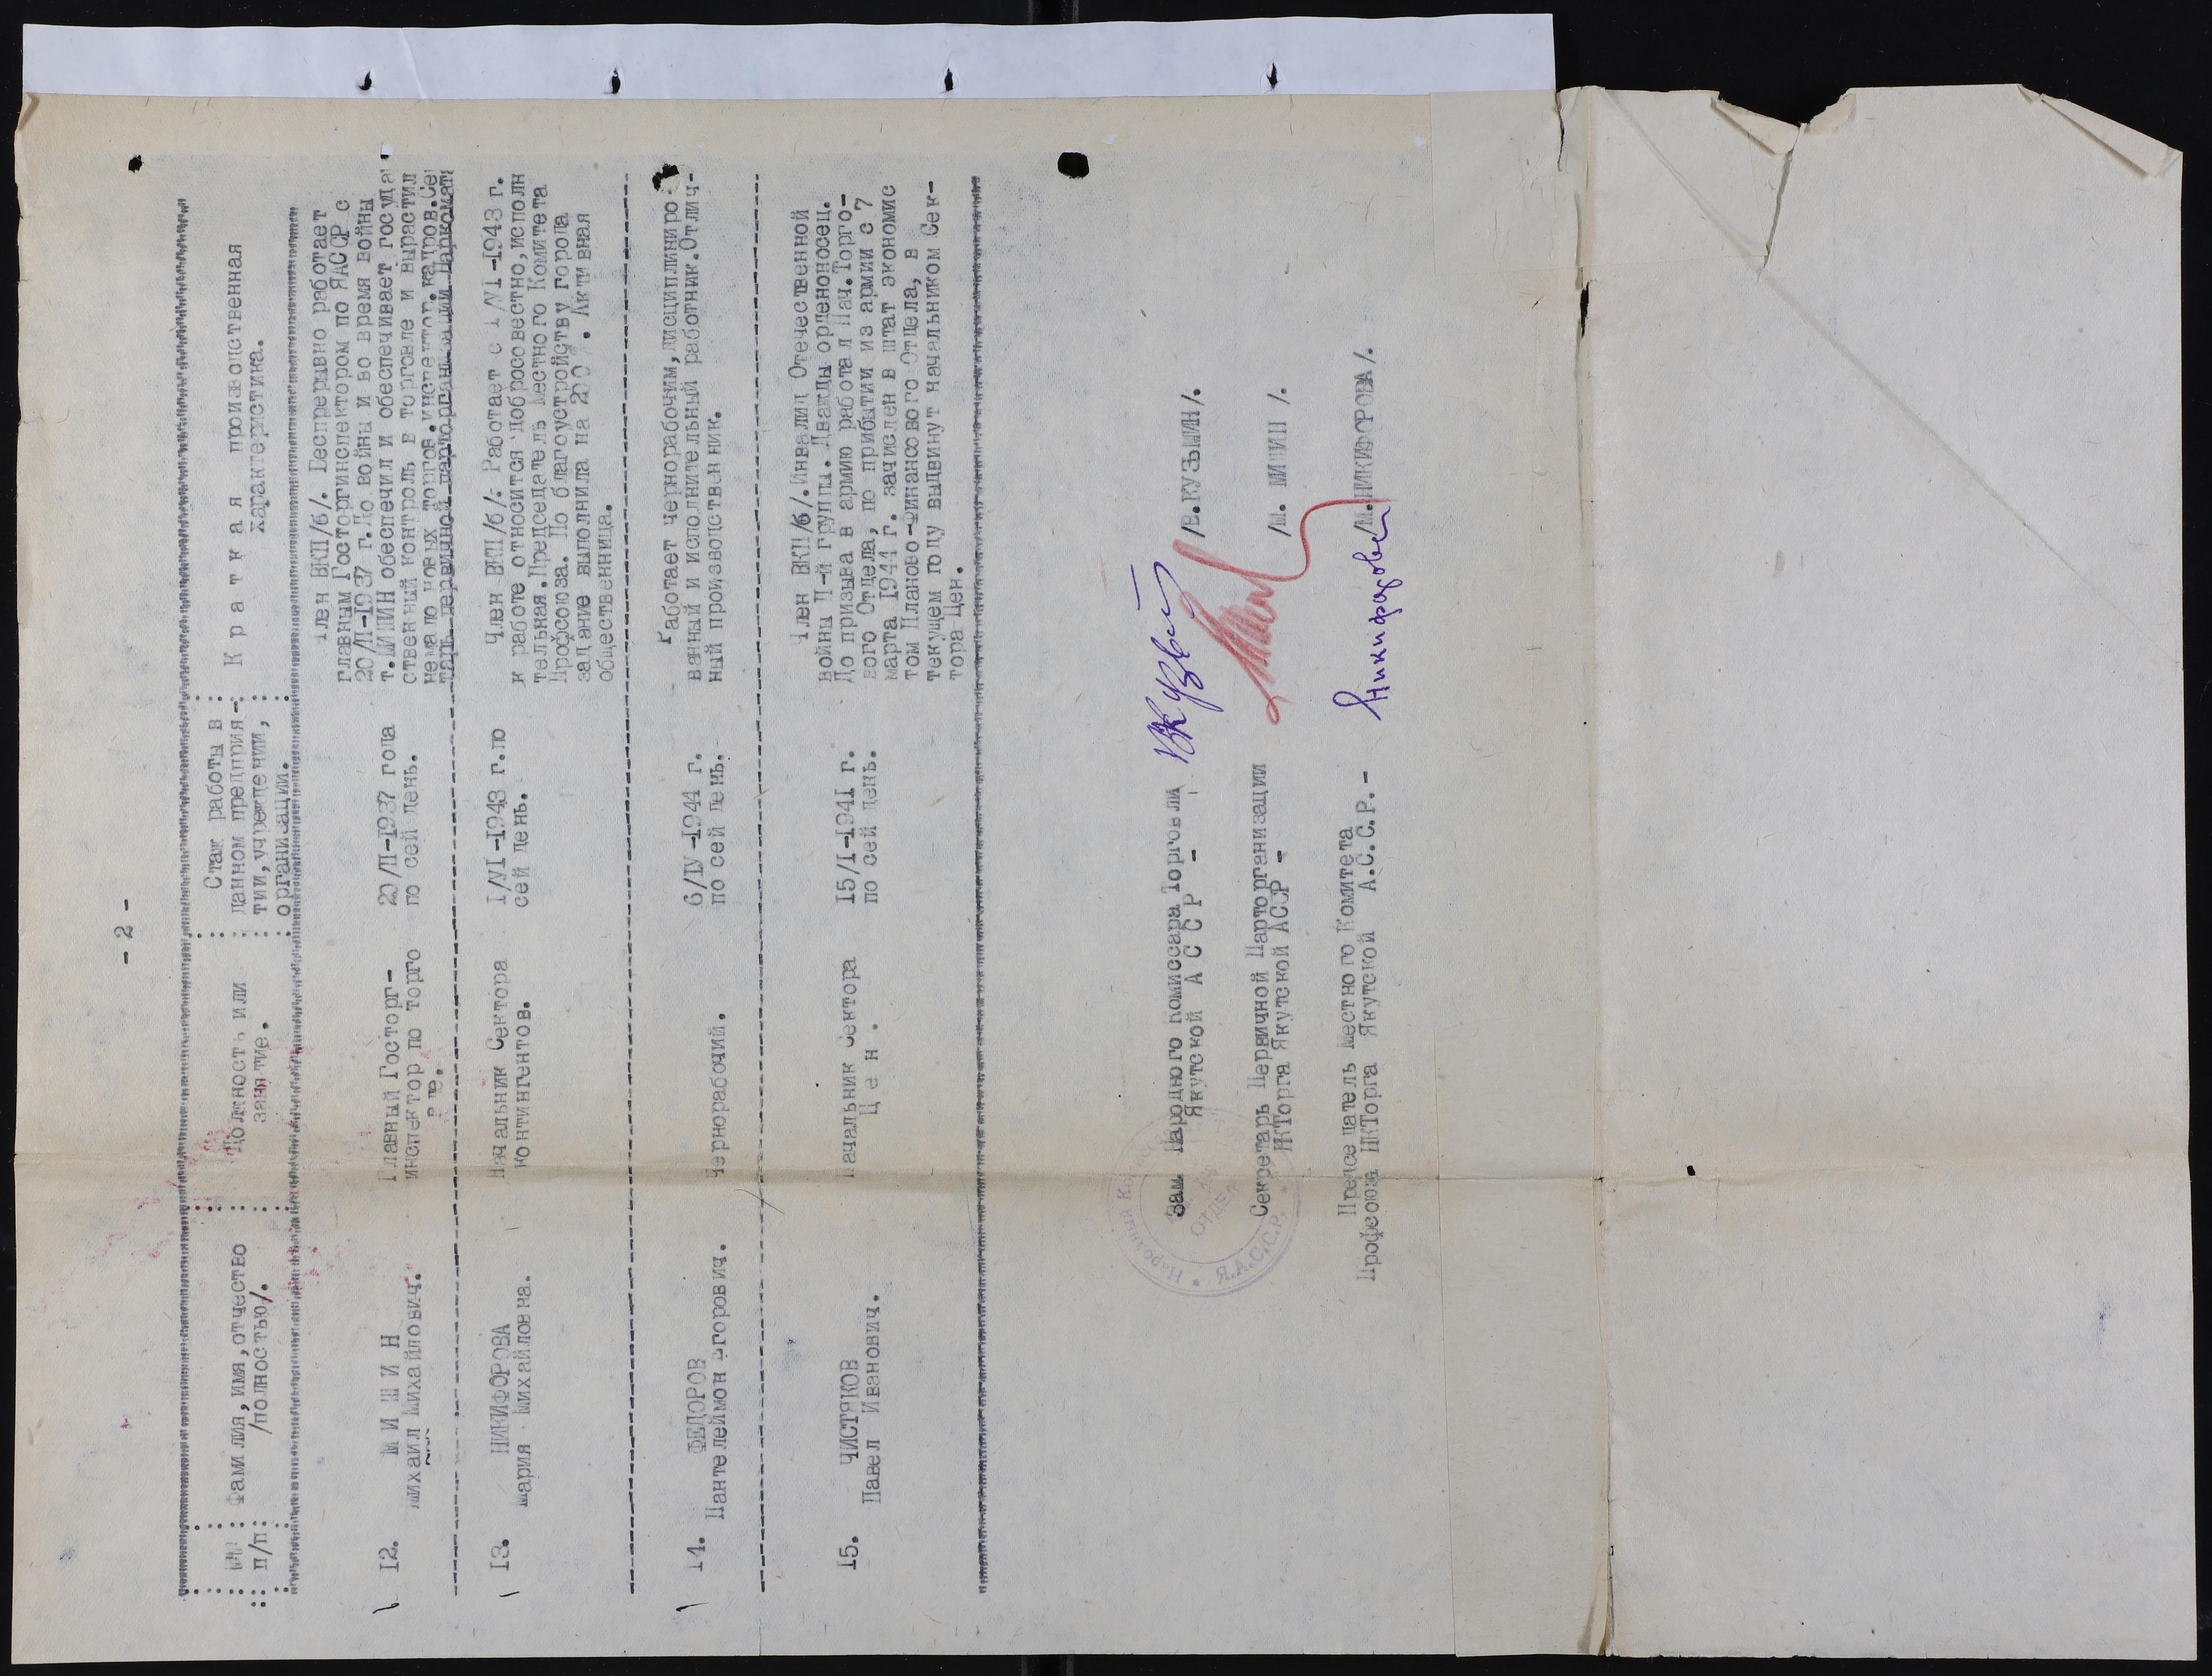 - 2 -
№№ : Фамилия,имя,отчество : Должность или : Стаж работы в : К р а т к а я   производственная
п/п : /полностью/. : занятие. : данном предприя- : характеристика.
тии,учреждении,
организации.
12. М И Ш И Н
Михаил Михайлович.
Главный Госторг-
инспектор по торго
вле.
20/П-1937 года
по сей день.
Член ВКП/б/. Беспрерывно работает
главным Госторгинспектором по ЯАССР с
20/П-1937 г.До войны и во время войны
т.МИШИН обеспечил и обеспечивает госуда
ственный контроль в торговле и вырастил
немало новых торгов.инспектор.кадров.Се
тарь первичной парторганизации Наркомат
13. НИКИФОРОВА
Мария Михайловна.
Начальник Сектора
контингентов.
1/VI-1943 г.по
сей день.
Член ВКП/б/. Работает с 1/VI-1943 г.
к работе относится добросовестно,исполн
тельная.Председатель Местного Комитета
Профсоюза. По благоустройству города
задание выполнила на 200%. Активная
общественница.
14. ФЕДОРОВ
Пантелеймон Егорович.
Чернорабочий.
6/IУ-1944 г.
по сей день.
Работает чернорабочим,дисциплиниро-
ванный и исполнительный работник.Отлич-
ный производственник.
15. ЧИСТЯКОВ
Павел Иванович.
Начальник Сектора
Ц е н .
15/I-1941 г.
по сей день.
Член ВКП/б/.Инвалид Отечественной
войны П-й группы. Дважды орденоносец.
До призыва в армию работал Нач.Торго-
вого Отдела, по прибытии из армии с 7
марта 1944 г. зачислен в штат экономис
том Планово-Финансового Отдела, в
текущем году выдвинут начальником Сек-
тора Цен.
Зам. Народного Комиссара Торговли
Якутской А С С Р -
/В.КУЗЬМИН/.
Секретарь Первичной Парторганизации
НКТорга Якутской АССР -
/М. МИШИН /.
Председатель Местного Комитета
Профсоюза НКТорга Якутской А.С.С.Р.-
Никифорова
/М.НИКИФОРОВА/.
Народный
ОТДЕЛ
Я.А.С.С.Р.